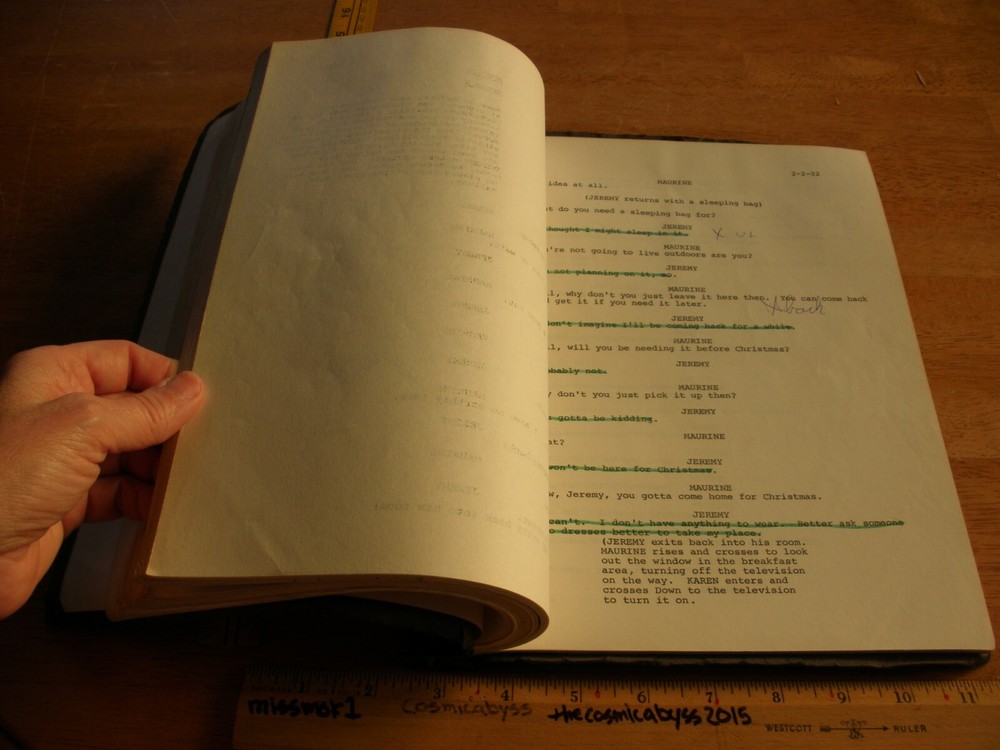 2-2-92
MAURINE
idea at all.
(JEREMY returns with a sleeping bag)
t do you need a sleeping bag for?
JEREMY
hought I might sleep in it. X
MAURINE
're not going to live outdoors are you?
JEREMY
not planning on it, no.
MAURINE
l, why don't you just leave it here then. You can come back
get it if you need it later. X back
JEREMY
on't imagine I'll be coming back for a while.
MAURINE
l, will you be needing it before Christmas?
JEREMY
bably not.
MAURINE
y don't you just pick it up then?
JEREMY
gotta be kidding.
MAURINE
at?
JEREMY
won't be here for Christmas.
MAURINE
w, Jeremy, you gotta come home for Christmas.
JEREMY
can't. I don't have anything to wear. Better ask someone
o dresses better to take my place.
(JEREMY exits back into his room.
MAURINE rises and crosses to look
out the window in the breakfast
area, turning off the television
on the way. KAREN enters and
crosses Down to the television
to turn it on.
16
1 2 3 4 5 6 7 8 9 10 11
missmok1 cosmicabyss thecosmicabyss2015
WESTCOTT RULER